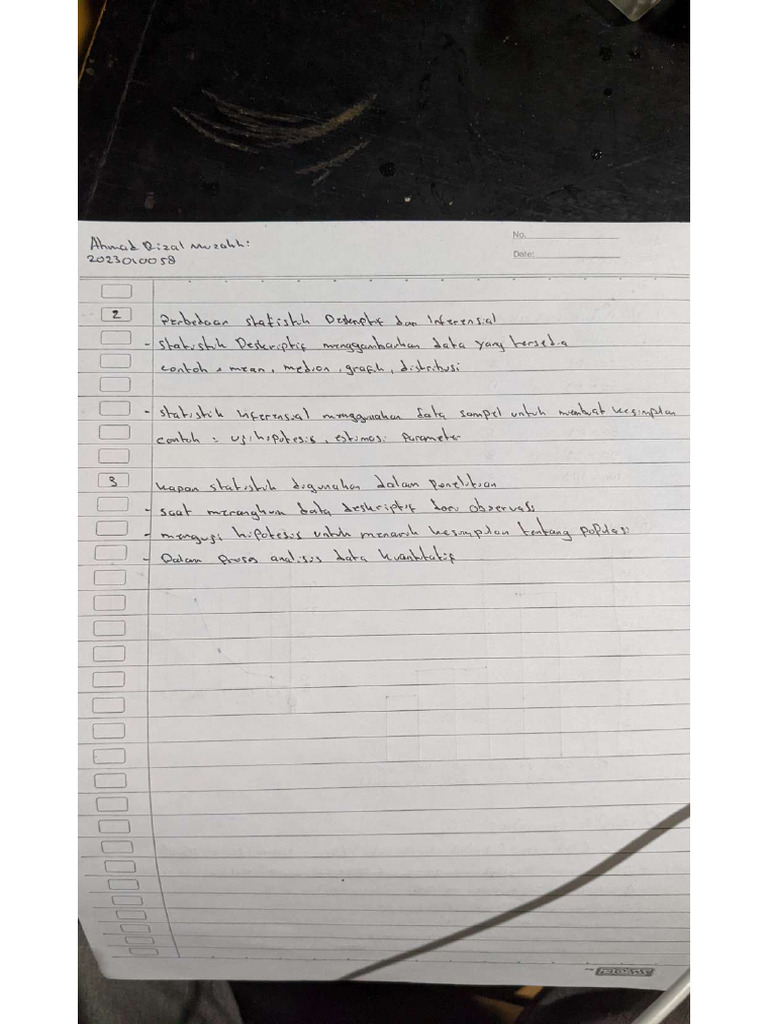 Ahmad Rizal
No.
2023010058
Date:
2 Perbedaan statistik Deskriptif dan Inferensial
- Statistik Deskriptif menggambarkan data yang tersedia
contoh : mean, median, grafik, distribusi
- Statistik Inferensial menggunakan data sampel untuk membuat kesimpulan
contoh : uji hipotesis, estimasi Parameter
3 Kapan statistik digunakan dalam penelitian
- Saat merangkum data deskriptif dari observasi
- menguji hipotesis untuk menarik kesimpulan tentang populasi
- Dalam proses analisis data kuantitatif